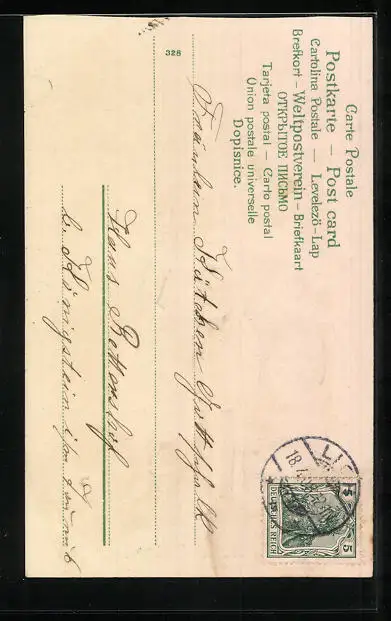 Carte Postale
Postkarte — Post card
Cartolina Postale — Levelező-Lap
Brefkort — Weltpostverein — Briefkaart
ОТКРЫТОЕ ПИСЬМО
Tarjeta postal — Carto postal
Union postale universelle
Dopisnice.
5 5
DEUTSCHES REICH
18.7.
Fräulein Kätchen
328
Haus
b. Königstein